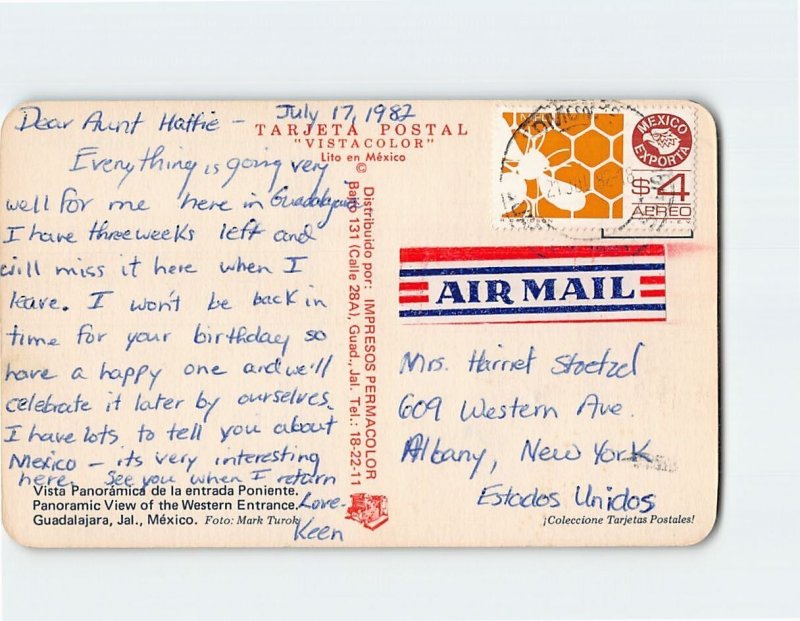 Dear Aunt Hattie - July 17, 1982
TARJETA POSTAL
"VISTACOLOR"
Lito en México
©
Everything is going very
well for me here in Guadalajara
I have three weeks left and
will miss it here when I
leave. I won't be back in
time for your birthday so
have a happy one and we'll
celebrate it later by ourselves.
I have lots to tell you about
Mexico - its very interesting
here. See you when I return
Love-
Keen
Vista Panorámica de la entrada Poniente.
Panoramic View of the Western Entrance.
Guadalajara, Jal., México. Foto: Mark Turok
Distribuido por: IMPRESOS PERMACOLOR
Bajío 131 (Calle 28A), Guad., Jal. Tel.: 18-22-11
MEXICO
EXPORTA
$4
AEREO
AIR MAIL
Mrs. Harriet Stoetzel
609 Western Ave.
Albany, New York
Estados Unidos
¡Coleccione Tarjetas Postales!